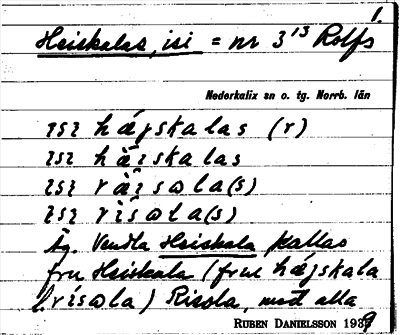 1.
Heiskalas, isi = nr 3¹³ Rolfs
Nederkalix sn o. tg. Norrb. län
ɪsɪ hájskalas (r)
ɪsɪ hàɪskalas
ɪsɪ ràɪsɷla(s)
ɪsɪ rìsɷla(s)
Äg. Vendla Heiskala kallas
fru Heiskala (frue hájskala
l. rísɷla) Risola, med alla
RUBEN DANIELSSON 1939